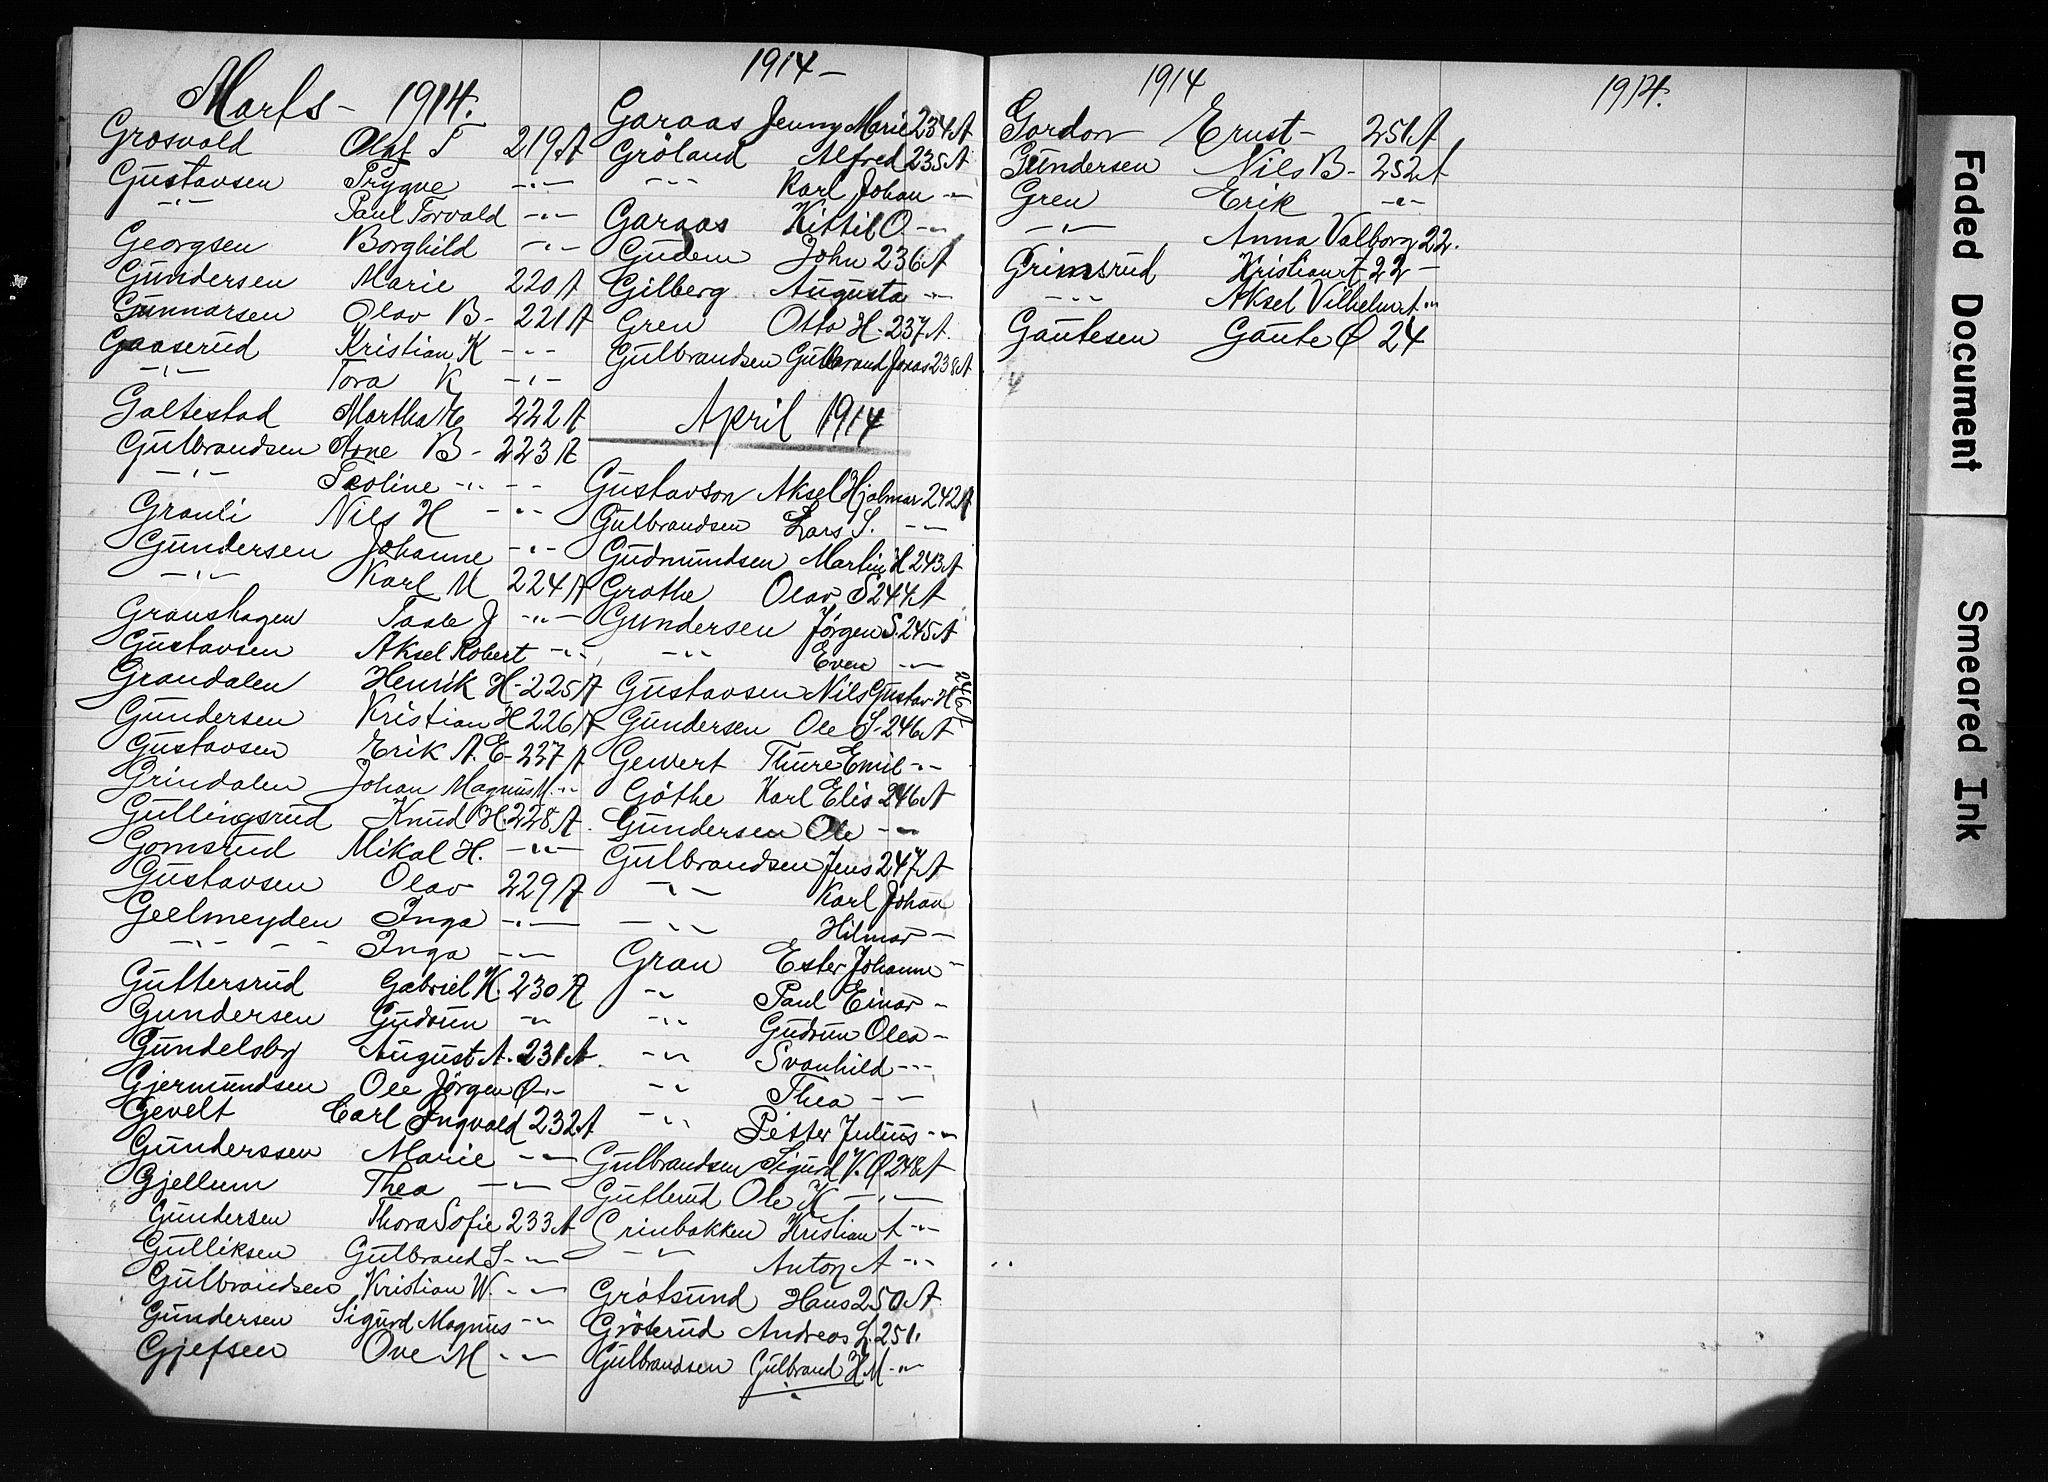 Marts - 1914.
Grosvold Olaf T 219A
Gustavsen Trygve -"-
-"- Paul Torvald -"-
Georgsen Borghild -"-
Gundersen Marie 220A
Gunnarsen Olav B- 221A
Gaaserud Kristian K -"-
-"- Tora K -"-
Galtestad Martha E 222A
Gulbrandsen Arne B- 223A
-"- Scoline -"-
Grauli Nils H -"-
Gundersen Johanne -"-
-"- Karl M 224A
Granshagen Taale J -"-
Gustavsen Aksel Robert -"-
Grandalen Henrik H- 225A
Gundersen Kristian H 226A
Gustavsen Erik A. E- 227A
Grindalen Johan Magnus M. -"-
Gullingsrud Knud H. 228A
Gomsrud Mikal H. -"-
Gustavsen Olav 229A
Geelmeyden Inga -"-
-"- - - Inga -"-
Guttersrud Gabriel K. 230A
Gundersen Gudrun -"-
Gundelsby August A. 231A
Gjermundsen Ole Jørgen Ø -"-
Gevelt Carl Ingvald 232A
Gunderssen Marie -"-
Gjellum Thea -"-
Gundersen Thora Sofie 233A
Gulliksen Gulbrand S- -"-
Gulbrandsen Kristian W. -"-
Gundersen Sigurd Magnus -"-
Gjefsen Ove M -"-
1914-
Garaas Jenny Marie 234A
Gröland Alfred 235A
-"- Karl Johan -"-
Garaas Kittil O. -"-
Gudem John 236A
Gilberg Augusta -"-
Gren Otto H- 237A.
Gulbrandsen Gulbrand Jonas 238A
April 1914
Gustavson Aksel Hjalmar 242A
Gulbrandsen Lars S. -"-
Gudmundsen Martin H 243A
Grothe Olav S 244A
Gundersen Jørgen S. 245A
-"- Even -"-
Gustavsen Nils Gustav H 246A
Gundersen Ole S- 246A
Gewert Thure Emil -"-
Göthe Karl Elis 246A
Gundersen Ole -"-
Gulbrandsen Jens 247A
-"- Karl Johan
-"- Hilmar -
Gran Ester Johanne -"
-"- Paul Einar -
-"- Gudrun Olea -
-"- Svanhild -"-
-"- Thea -"-
-"- Petter Julius -"-
Gulbrandsen Sigurd K. Ø 248A
Gutterud Ole K -"-
Grinbakken Kristian A -"-
-"- Anton A -"-
Grötsund Hans 250A
Gröterud Andreas L. 251.
Gulbrandsen Gulbrand H. M -"-
1914
Gordon Ernst- 251A
Gundersen Nils B- 252A
Gren Erik -"-
-"- Anna Valborg 22.
Grimsrud Kristian A 22 -
-"- Aksel Vilhelm A. -"-
Gautesen Gaute Ø 24
1914.
Faded Document
Smeared Ink